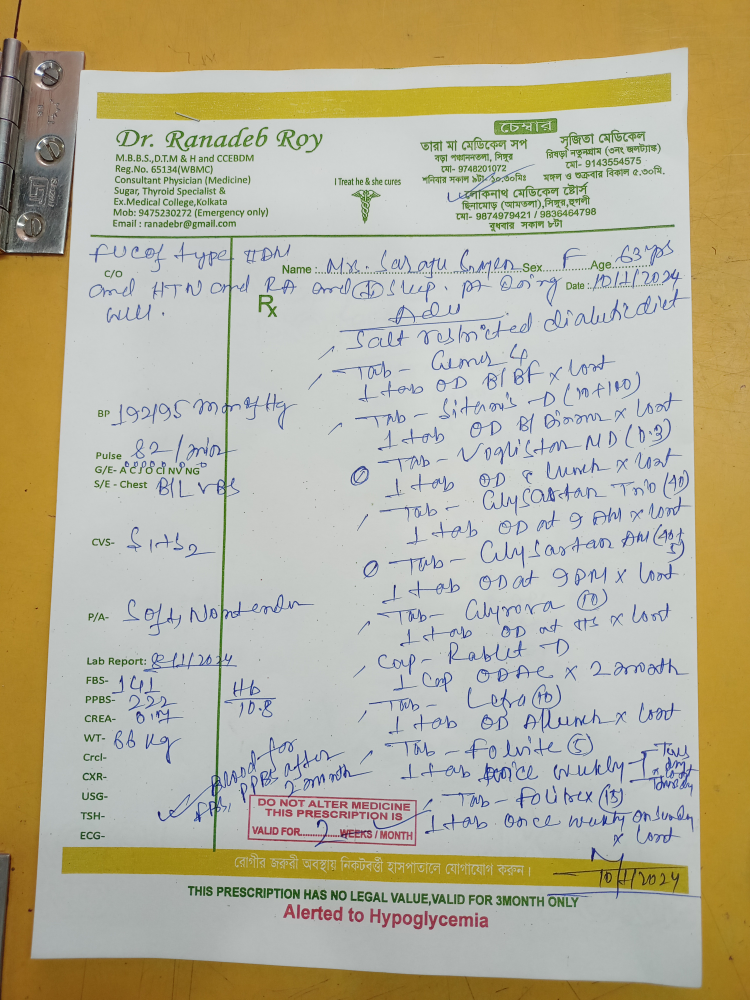 Dr. Ranadeb Roy
M.B.B.S.,D.T.M & H and CCEBDM
Reg.No. 65134(WBMC)
Consultant Physician (Medicine)
Sugar, Thyroid Specialist &
Ex.Medical College,Kolkata
Mob: 9475230272 (Emergency only)
Email : ranadebr@gmail.com
I Treat he & she cures
চেম্বার
তারা মা মেডিকেল সপ
বড়া পঞ্চাননতলা, সিঙ্গুর
মো- 9748201072
শনিবার সকাল ৯টা- ১০.৩০মিঃ
সৃজিতা মেডিকেল
রিষড়া নতুনগ্রাম (৩নং জলট্যাঙ্ক)
মো- 9143554575
মঙ্গল ও শুক্রবার বিকাল ৫.৩০মি.
লোকনাথ মেডিকেল ষ্টোর্স
ছিনামোড় (আমতলা),সিঙ্গুর,হুগলী
মো- 9874979421 / 9836464798
বুধবার সকাল ৮টা
Name : Mrs. Sex F Age 63 yrs
Date : 10/1/2024
C/O
FUC of type II DM
and HTN and RA and sleep. pt doing
well.
BP 192/95 mm of Hg
Pulse 82/min
G/E- A C J O Cl NV NG
S/E - Chest B/L VBS
CVS- S1+S2
P/A- Soft, Nontender
Lab Report: 8/1/2024
FBS- 141
PPBS- 222
Hb
10.8
CREA- 0.7
WT- 66 kg
Crcl-
CXR-
USG-
TSH-
ECG-
Blood for
FBS, PPBS after
2 month
Rx
Adv
Salt restricted diabetic diet
Tab - 4
1 tab OD B/BF x cont
Tab - D (10+100)
1 tab OD B/Dinner x cont
Tab - Voglistar MD (0.3)
1 tab OD c lunch x cont
Tab - Glysartan Trio (40)
1 tab OD at 9 AM x cont
Tab - Glysartan AM (40+5)
1 tab OD at 9 PM x cont
Tab - (10)
1 tab OD at HS x cont
Cap - Rablet D
1 Cap OD AC x 2 month
Tab - (10)
1 tab OD A/lunch x cont
Tab - Folvite (5)
1 tab twice weekly
Tab - Folitrex (15)
1 tab once weekly on Sunday
x cont
DO NOT ALTER MEDICINE
THIS PRESCRIPTION IS
VALID FOR 2 WEEKS / MONTH
10/1/2024
রোগীর জরুরী অবস্থায় নিকটবর্ত্তী হাসপাতালে যোগাযোগ করুন।
THIS PRESCRIPTION HAS NO LEGAL VALUE,VALID FOR 3MONTH ONLY
Alerted to Hypoglycemia